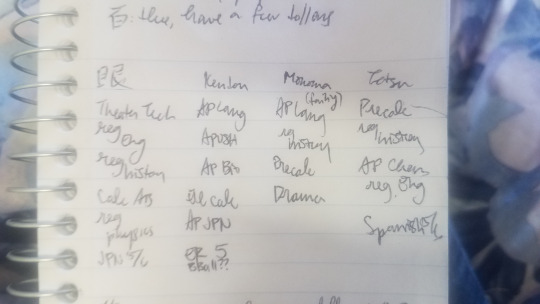 : they have a few follows
Kenton Motoma Tetsu
Theater Tech AP Lang AP Lang Precalc
reg Eng APUSH reg history reg history
reg history AP Bio Precalc AP Chem
Calc AB Precalc Drama reg. Eng
reg physics AP JPN Spanish 5/6
JPN 5/6 5
BBall??